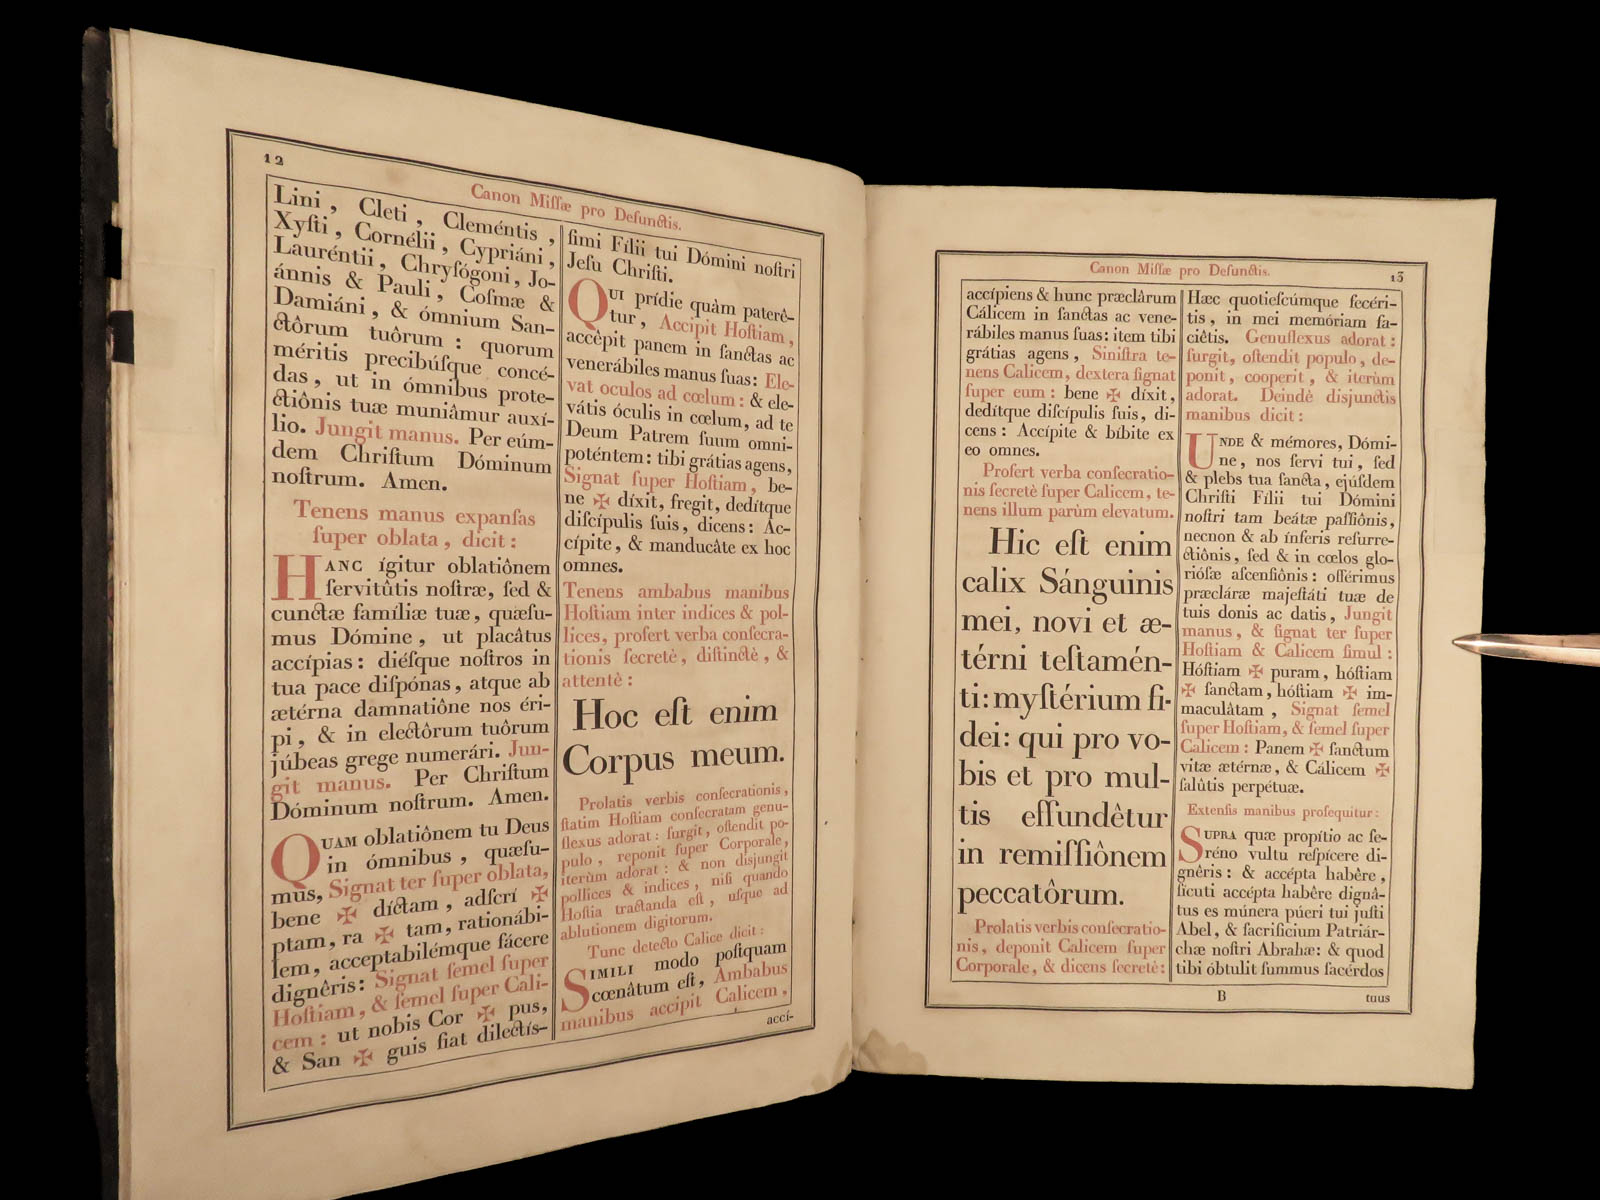 12
Canon Miſſæ pro Defunctis.
Lini, Cleti, Cleméntis,
Xyſti, Cornélii, Cypriáni,
Lauréntii, Chryſógoni, Jo-
ánnis & Pauli, Coſmæ &
Damiáni, & ómnium San-
ctôrum tuôrum : quorum
méritis precibúſque concé-
das, ut in ómnibus prote-
ctiônis tuæ muniâmur auxí-
lio. Jungit manus. Per eúm-
dem Chriſtum Dóminum
noſtrum. Amen.
Tenens manus expanſas
ſuper oblata, dicit :
HANC ígitur oblatiônem
ſervitûtis noſtræ, ſed &
cunctæ famíliæ tuæ, quæſu-
mus Dómine, ut placâtus
accípias : diéſque noſtros in
tua pace diſpónas, atque ab
ætérna damnatiône nos éri-
pi, & in electôrum tuôrum
júbeas grege numerári. Jun-
git manus. Per Chriſtum
Dóminum noſtrum. Amen.
QUAM oblatiônem tu Deus
in ómnibus, quæſu-
mus, Signat ter ſuper oblata,
bene ✠ díctam, adſcrí ✠
ptam, ra ✠ tam, rationábi-
lem, acceptabilémque fácere
dignêris : Signat ſemel ſuper
Hoſtiam, & ſemel ſuper Cali-
cem : ut nobis Cor ✠ pus,
& San ✠ guis fiat dilectíſ-
ſimi Fílii tui Dómini noſtri
Jeſu Chriſti.
QUI prídie quàm paterê-
tur, Accipit Hoſtiam,
accêpit panem in ſanctas ac
venerábiles manus ſuas : Ele-
vat oculos ad cœlum : & ele-
vátis óculis in cœlum, ad te
Deum Patrem ſuum omni-
poténtem : tibi grátias agens,
Signat ſuper Hoſtiam, be-
ne ✠ díxit, fregit, dedítque
diſcípulis ſuis, dicens : Ac-
cípite, & manducâte ex hoc
omnes.
Tenens ambabus manibus
Hoſtiam inter indices & pol-
lices, profert verba conſecra-
tionis ſecretè, diſtinctè, &
attentè :
Hoc eſt enim
Corpus meum.
Prolatis verbis conſecrationis,
ſtatim Hoſtiam conſecratam genu-
flexus adorat : ſurgit, oſtendit po-
pulo, reponit ſuper Corporale,
iterùm adorat : & non disjungit
pollices & indices, niſi quando
Hoſtia tractanda eſt, uſque ad
ablutionem digitorum.
Tunc detecto Calice dicit :
SIMILI modo poſtquam
cœnâtum eſt, Ambabus
manibus accipit Calicem,
accí-
Canon Miſſæ pro Defunctis.
13
accípiens & hunc præclârum
Cálicem in ſanctas ac vene-
rábiles manus ſuas : item tibi
grátias agens, Siniſtra te-
nens Calicem, dextera ſignat
ſuper eum : bene ✠ díxit,
dedítque diſcípulis ſuis, di-
cens : Accípite & bíbite ex
eo omnes.
Profert verba conſecratio-
nis ſecretè ſuper Calicem, te-
nens illum parùm elevatum.
Hic eſt enim
calix Sánguinis
mei, novi et æ-
térni teſtamén-
ti: myſtérium fi-
dei: qui pro vo-
bis et pro mul-
tis effundêtur
in remiſſiônem
peccatôrum.
Prolatis verbis conſecratio-
nis, deponit Calicem ſuper
Corporale, & dicens ſecretè :
Hæc quotieſcúmque fecéri-
tis, in mei memóriam fa-
ciêtis. Genuflexus adorat :
ſurgit, oſtendit populo, de-
ponit, cooperit, & iterùm
adorat. Deindè disjunctis
manibus dicit :
UNDE & mémores, Dómi-
ne, nos ſervi tui, ſed
& plebs tua ſancta, ejúſdem
Chriſti Fílii tui Dómini
noſtri tam beátæ paſſiônis,
necnon & ab ínferis reſurre-
ctiônis, ſed & in cœlos glo-
rióſæ aſcenſiônis : offérimus
præcláræ majeſtáti tuæ de
tuis donis ac datis, Jungit
manus, & ſignat ter ſuper
Hoſtiam & Calicem ſimul :
Hóſtiam ✠ puram, hóſtiam
✠ ſanctam, hóſtiam ✠ im-
maculâtam, Signat ſemel
ſuper Hoſtiam, & ſemel ſuper
Calicem : Panem ✠ ſanctum
vitæ ætérnæ, & Cálicem ✠
ſalûtis perpétuæ.
Extenſis manibus proſequitur :
SUPRA quæ propítio ac ſe-
réno vultu reſpícere di-
gnêris : & accépta habêre,
ſicuti accépta habêre dignâ-
tus es múnera púeri tui juſti
Abel, & ſacrifícium Patriár-
chæ noſtri Abrahæ: & quod
tibi óbtulit ſummus ſacérdos
B
tuus